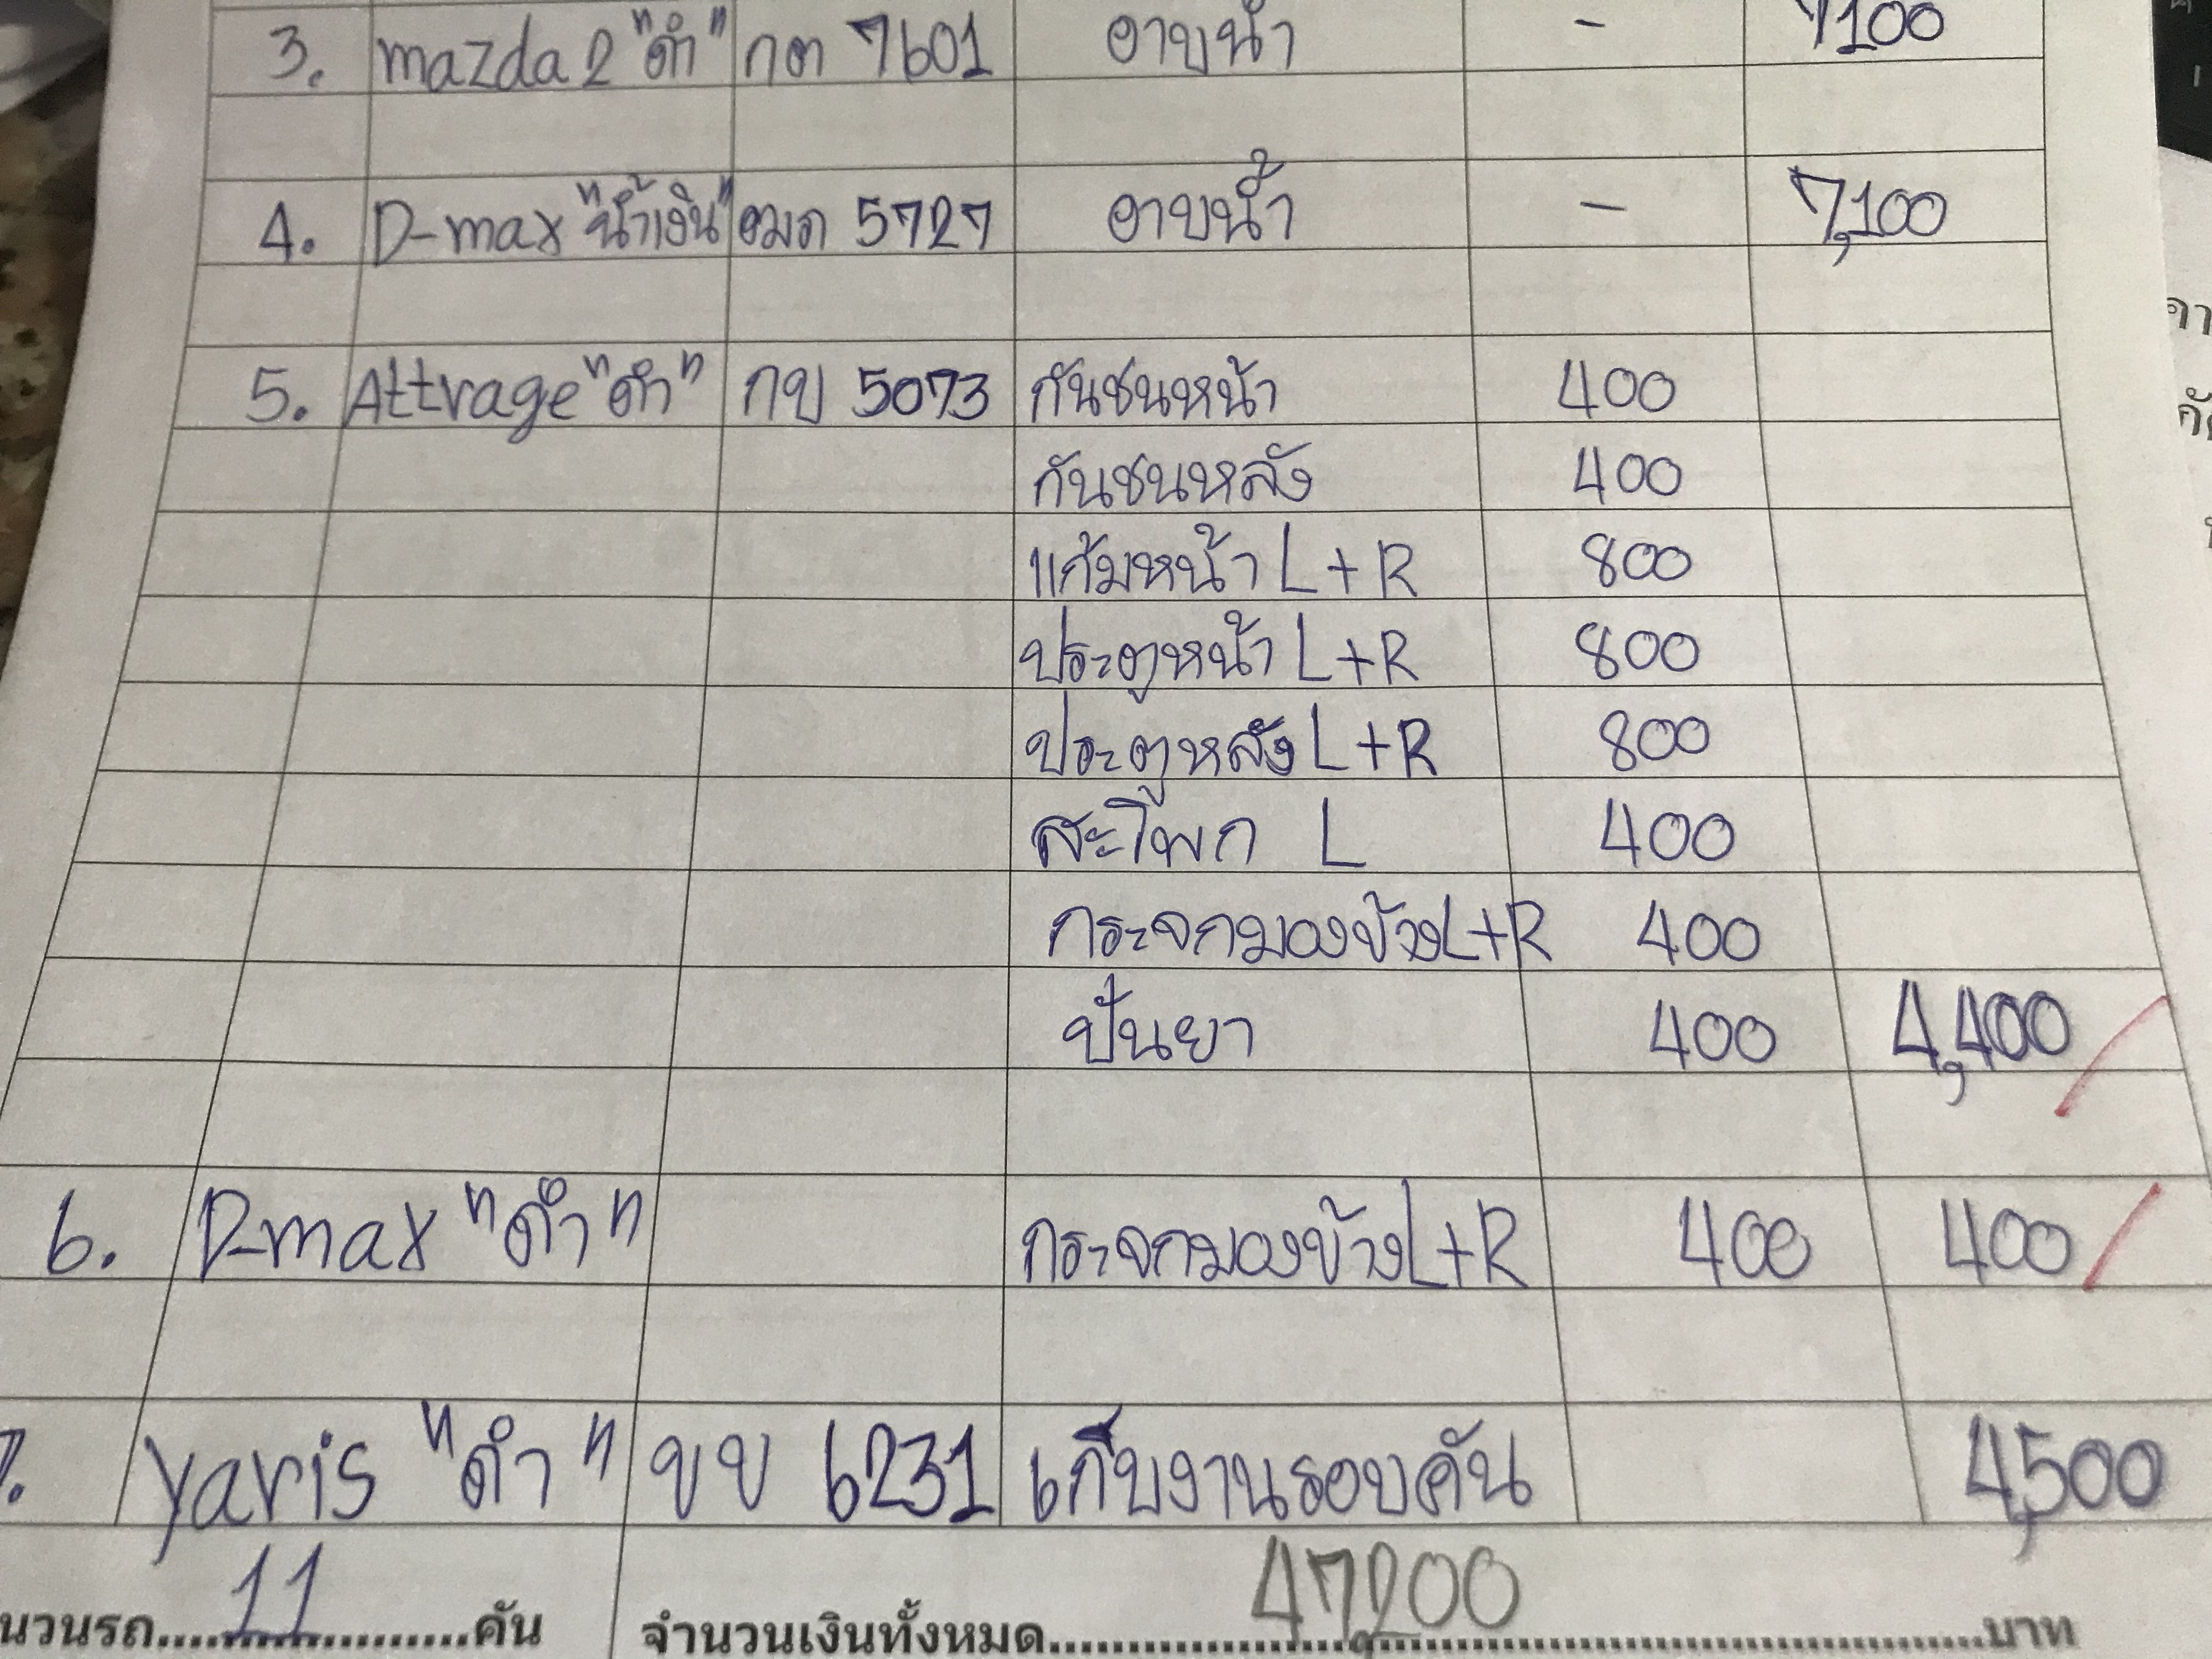 3. mazda 2 "ดำ" กต 7601 อาบน้ำ - 7100
4. D-max "น้ำเงิน" อมภ 5727 อาบน้ำ - 7,100
5. Attrage "ดำ" กข 5073 กันชนหน้า 400
กันชนหลัง 400
แก้มหน้า L+R 800
ประตูหน้า L+R 800
ประตูหลัง L+R 800
สะโพก L 400
กระจกมองข้าง L+R 400
ปั่นยา 400 4,400
6. D-max "ดำ" กระจกมองข้าง L+R 400 400
7. yaris "ดำ" ขข 6231 เก็บงานรอบคัน 4,500
นวนรถ....11....คัน จำนวนเงินทั้งหมด....47,200....บาท